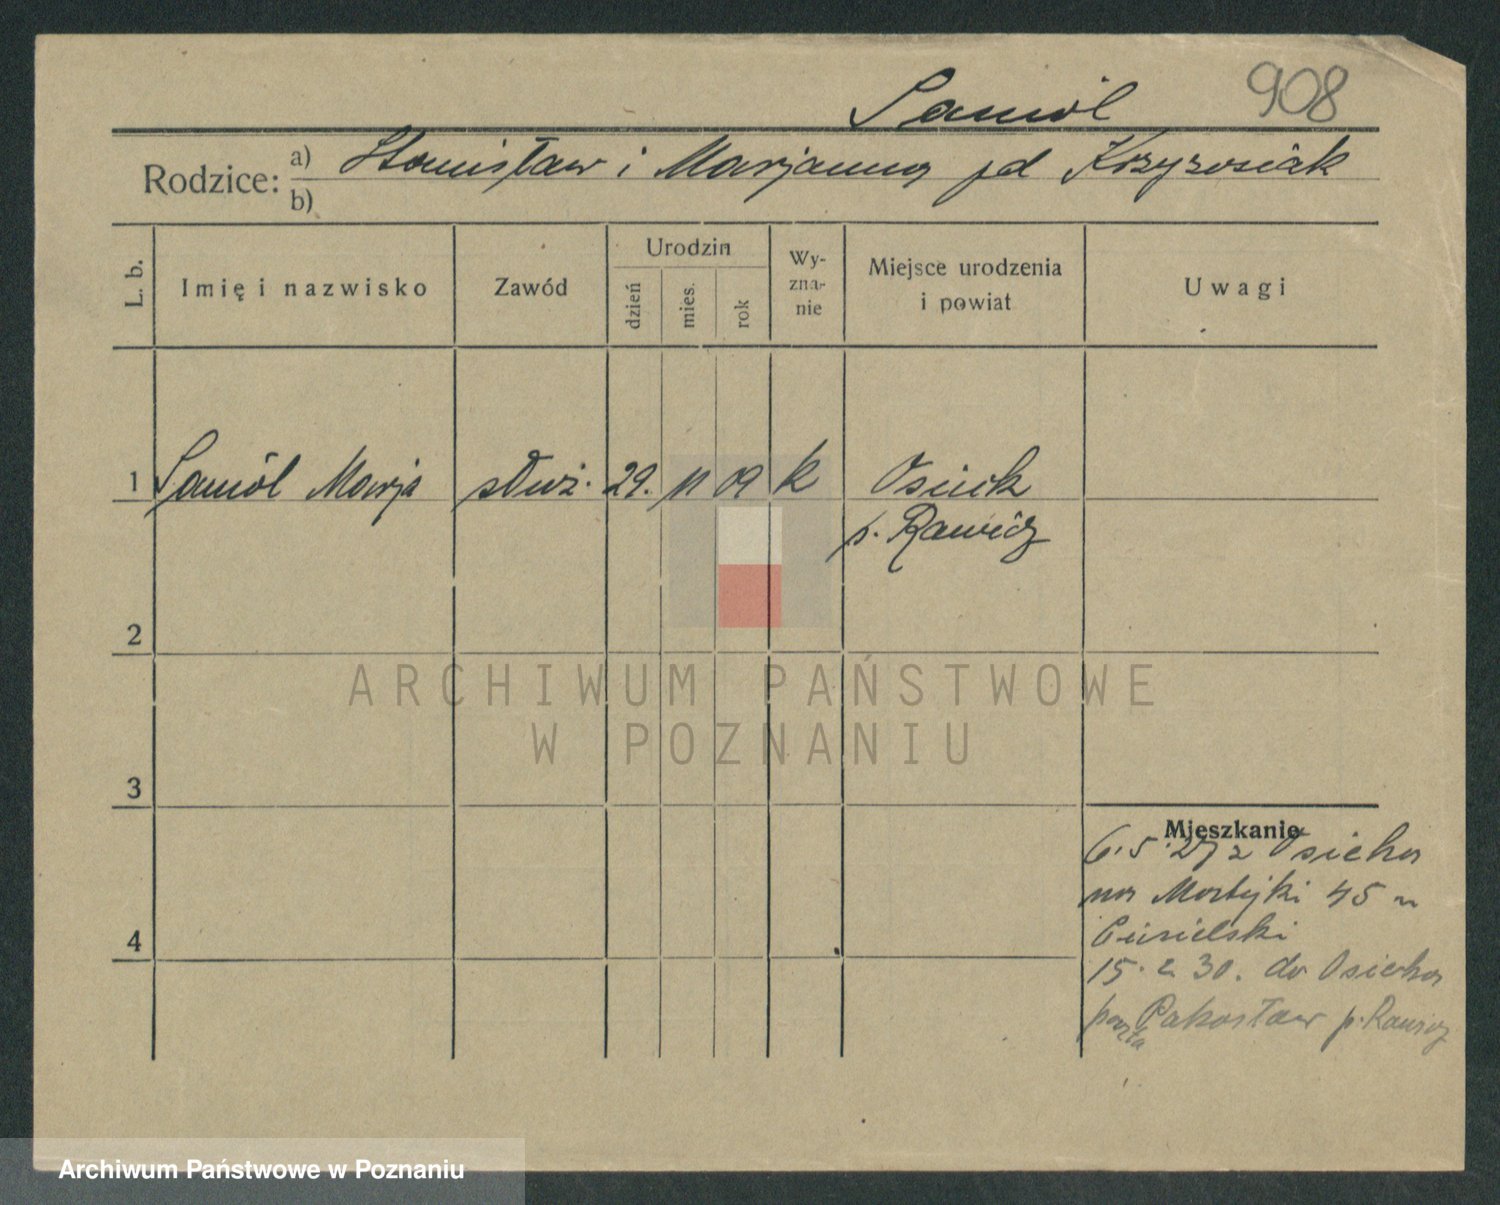 Samól 908
Rodzice: a) Stanisław i Marjanna pd Krzyzosiak
b)
L. b. Imię i nazwisko Zawód Urodzin dzień mies. rok Wyznanie Miejsce urodzenia i powiat Uwagi
1 Samól Marja służ. 29. 11 09 k Osiek
p. Rawicz
2
ARCHIWUM PAŃSTWOWE
W POZNANIU
3
Mieszkanie
6.5.29 z Osieka
na 45
15. 2. 30. do Osieka
poczta Pakosław p. Rawicz
4
Archiwum Państwowe w Poznaniu